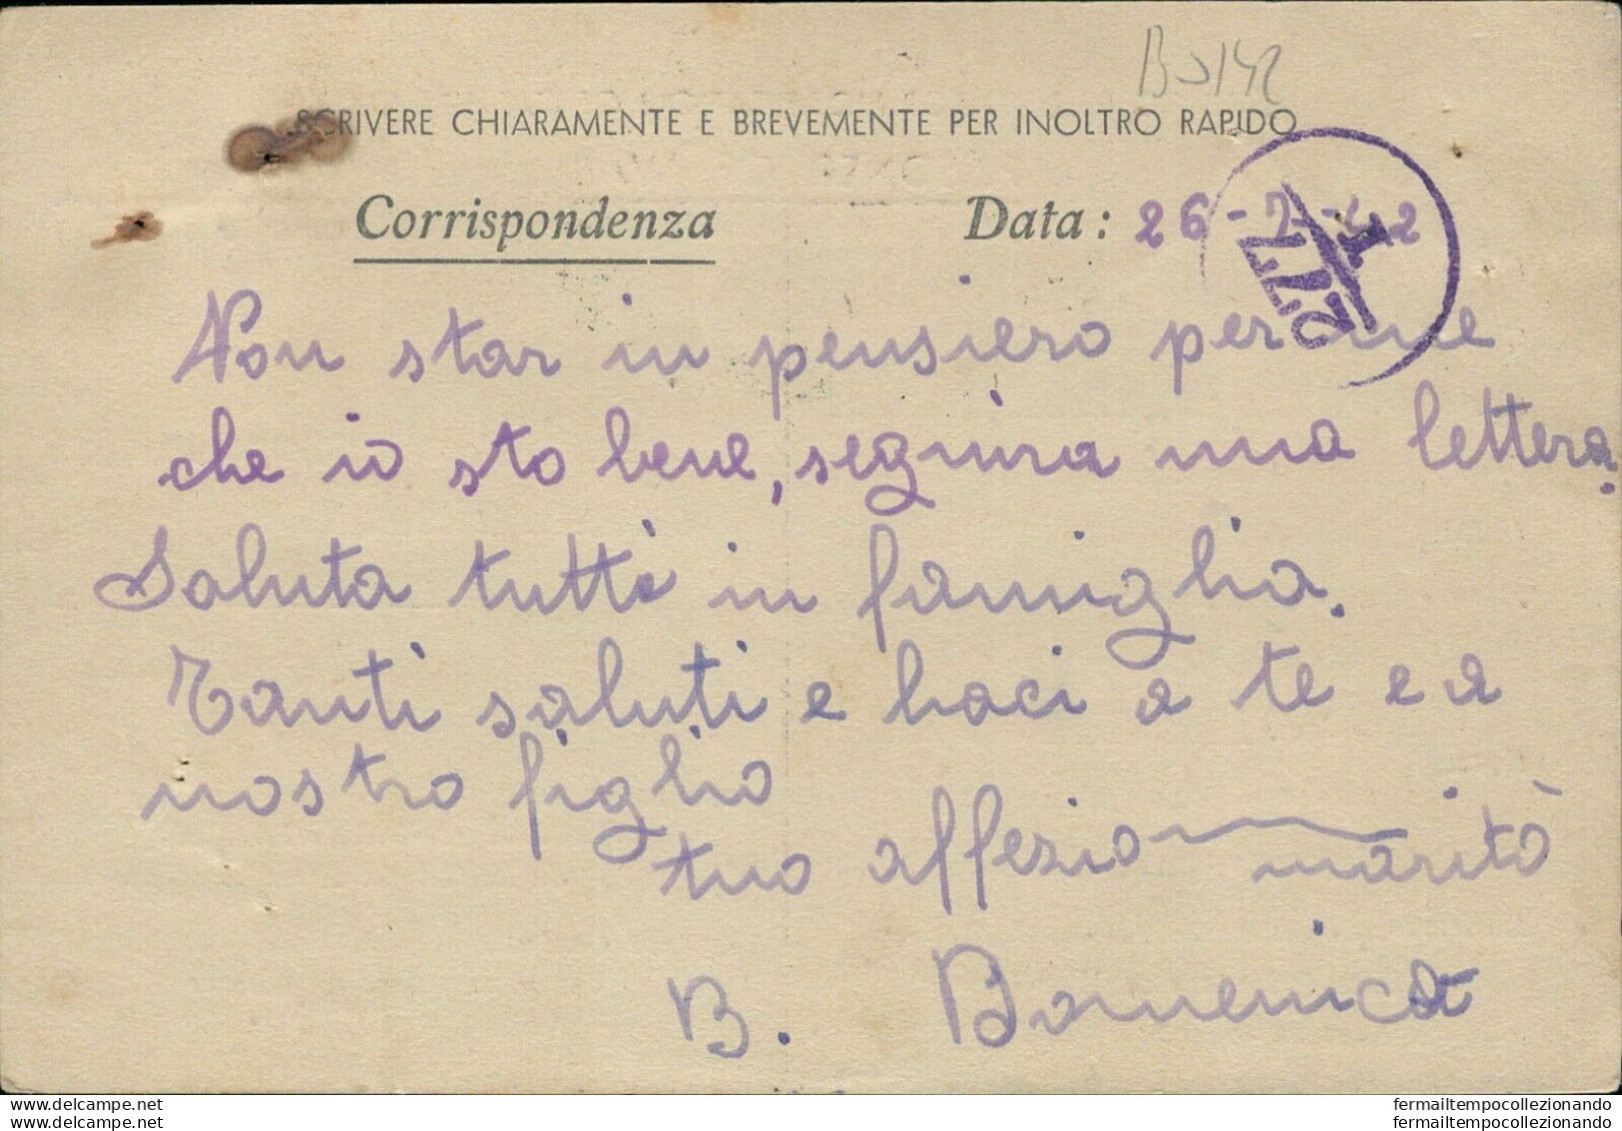 SCRIVERE CHIARAMENTE E BREVEMENTE PER INOLTRO RAPIDO
Corrispondenza Data: 26-2-42
Non star in pensiero per me
che io sto bene, seguira una lettera.
Saluta tutti in famiglia.
Tanti saluti e baci a te e a
nostro figlio
tuo affezio marito
B. Domenico
www.delcampe.net
www.delcampe.net
fermailtempocollezionando
fermailtempocollezionando